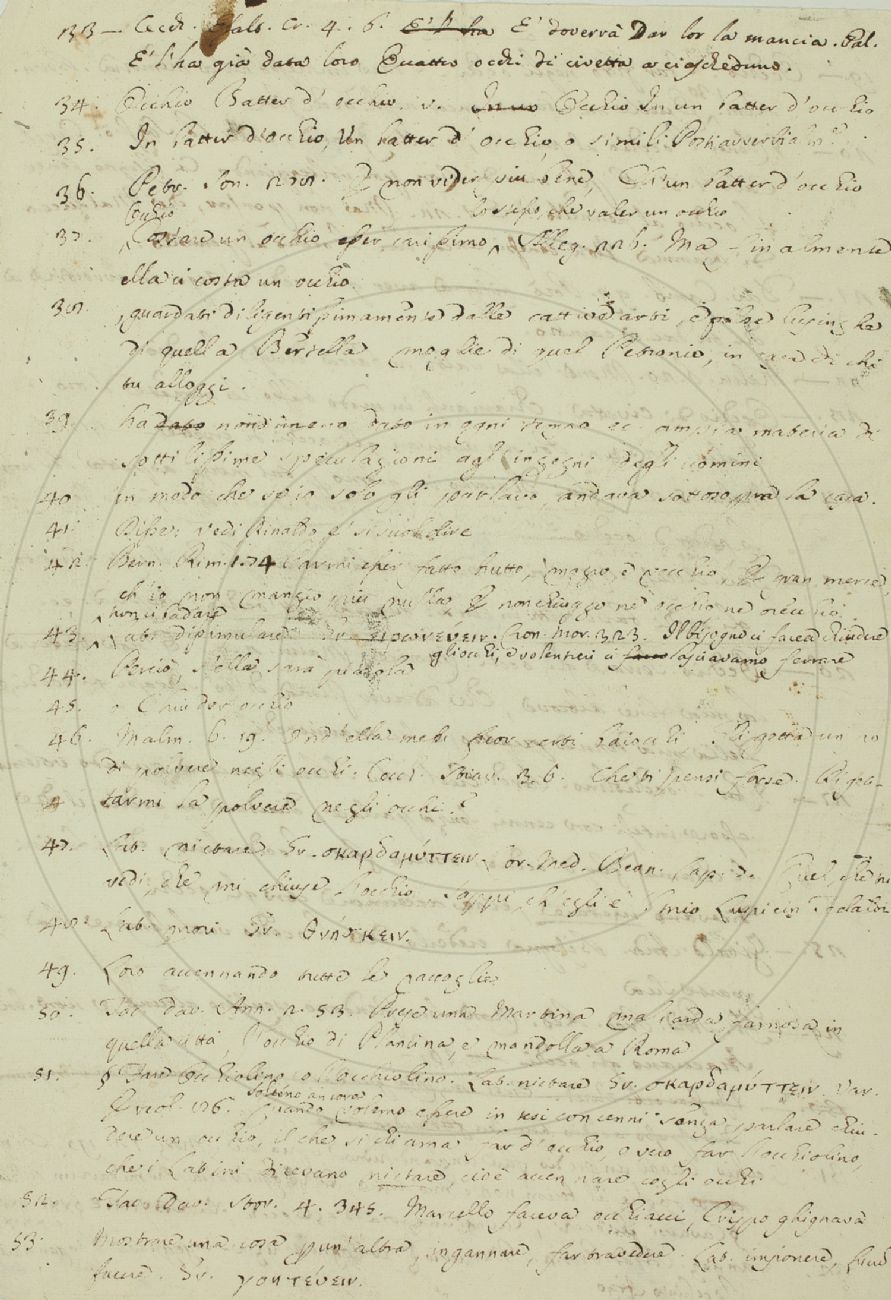 133 — Cecch. Salt. Cr. 4. 6. E' l'ha E' doverrà Dar lor la mancia. Pal.
E' l'ha già data loro Quattro occhi di civetta a ciascheduno.
34. Occhio Batter d'occhio. v. In un Occhio In un batter d'occhio
35. In batter d'occhio, Un batter d'occhio, o simili. Post. avverbialm.
36. Petr. Son. E non vider più bene, Ch'un batter d'occhio
Occhio lo stesso, che valer un occhio
37. Costare un occhio esser carissimo, Alleg. Ma finalmente
ella ci costa un occhio.
38. guardati diligentissimamente dalle cattive arti, e lusinghe
di quella Bertella moglie di quel Petronio, in casa di chi
tu alloggi.
39. ha dato nondimeno dato in ogni tempo ec. ampia materia di
sottilissime speculazioni agl'ingegni degli uomini
40 in modo che se io solo gli parlavo, andava sottosopra la casa.
41. Disse: vedi Rinaldo e' si vuol dire
42. Bern. Rim. 1. 74 L'avermi esser fatto tutto, magro, e vecchio, gran mercè,
ch'io non mangio più nulla E non chiuggo nè occhio nè orecchio
non ci badare
43. Lat. dissimulare Gr. Cron. Mor. 323. Il bisogno ci facea chiudere
gli occhi, e volentieri ci lasciavamo ferrare
44. Perciò, Stella sarà piccola
45. o Chiuder occhio
46. Malm. 6. 19. Ond'ella mette fuor certi baiocchi, gotta un
di polvere negli occhi. Cecch. Stiav. 3. 6. Che ti pensi forse Di git-
tarmi la polvere negli occhi?
47. Lat. nictare Gr. σκαρδαμύττειν. Lor. Med. Bean. Sappi da quel che mi
vedi, che mi chiuse l'occhio. sappi, ch'egli è il mio
48. Lat. mori Gr. θνήσκειν.
49. Loro accennando tutte le raccoglie
50. Tac. Dav. Ann. 2. 53. Prese una Martina maliarda famosa in
quella città, l'occhio di Plancina, e mandolla a Roma
51. § Fare occhiolino o l'occhiolino. Lat. nictare Gr. σκαρδαμύττειν Var.
Ercol. Sogliono ancora Quando vogliono essere intesi con cenni senza parlare chiu-
dere un occhio, il che si chiama far d'occhio, o vero far l'occhiolino,
che i Latini dicevano nictare, cioè accennare cogli occhi
52. Tac. Dav. Stor. 4. 345. Marcello faceva occhiacci, Crispo ghignava
53. Mostrare una cosa per un'altra, ingannare, far travedere. Lat. imponere,
facere. Gr. γοητεύειν.